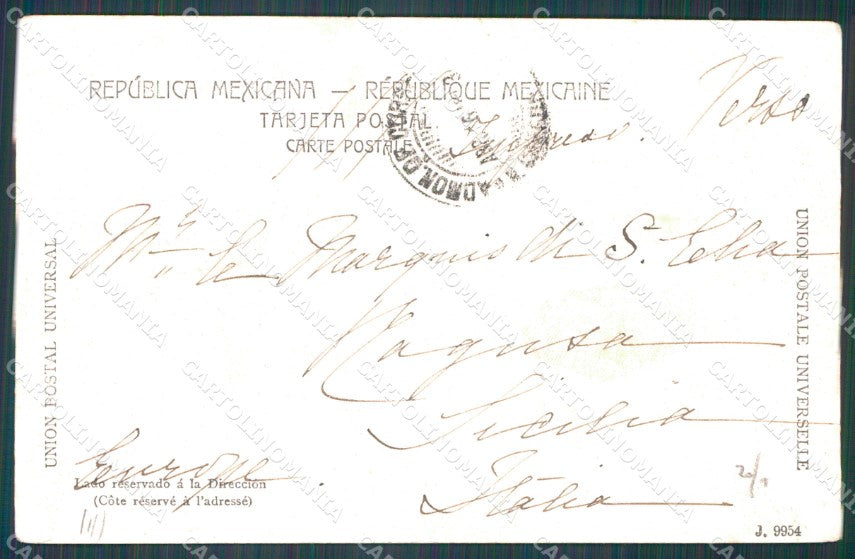 REPÚBLICA MEXICANA — RÉPUBLIQUE MEXICAINE
TARJETA POSTAL
CARTE POSTALE
Verso
ADMON. DE
Mr. le Marquis di S. Elia
Ragusa
Sicilia
Italia
Europe
UNION POSTAL UNIVERSAL
UNION POSTALE UNIVERSELLE
Lado reservado á la Dirección
(Côte réservé à l'adressé)
J. 9954
CARTOLINOMANIA